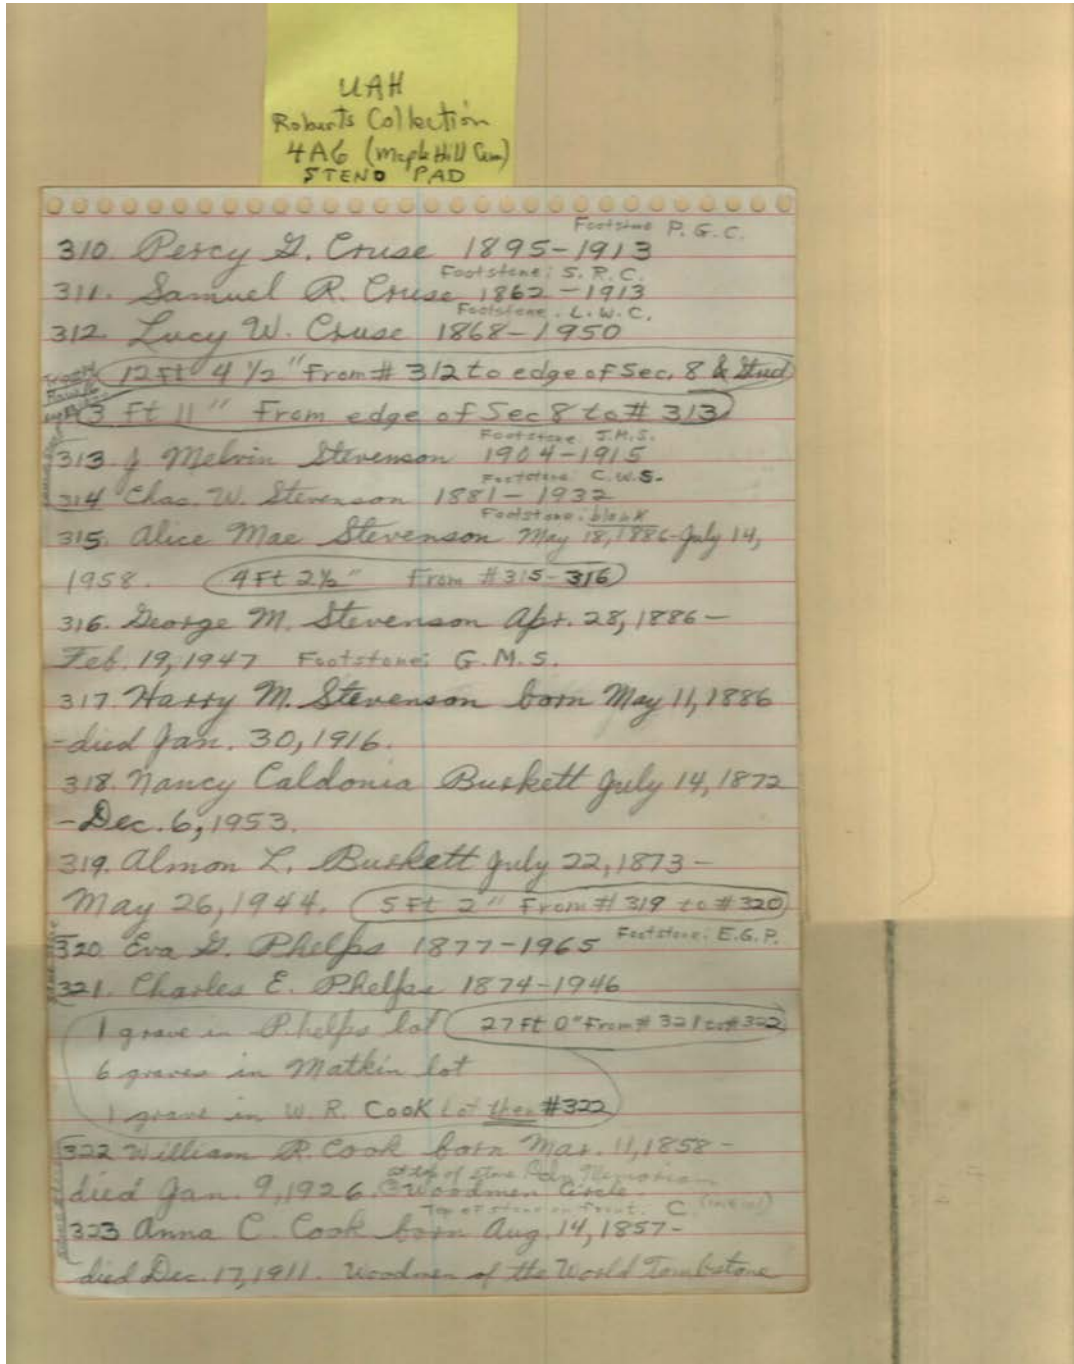 UAH
Roberts Collection
4A6 (Maple Hill Cem)
STENO PAD
Footstone P. G. C.
310. Percy G. Cruse 1895-1913
Footstone: S. R. C.
311. Samuel R. Cruse 1862-1913
Footstone. L. W. C.
312. Lucy W. Cruse 1868-1950
12 Ft 4 1/2" From # 312 to edge of Sec. 8 &
3 Ft 11" From edge of Sec 8 to # 313
Footstone J.M.S.
313 J Melvin Stevenson 1904-1915
Footstone C.W.S.
314 Chas. W. Stevenson 1881-1932
Footstone: blank
315. Alice Mae Stevenson May 18, 1886-July 14,
1958. 4 Ft 2 1/2" From # 315-316
316. George M. Stevenson Apr. 28, 1886-
Feb. 19, 1947 Footstone: G. M. S.
317. Harry M. Stevenson born May 11, 1886
-died Jan. 30, 1916.
318. Nancy Caldonia Burkett July 14, 1872
-Dec. 6, 1953.
319. Almon L. Burkett July 22, 1873-
May 26, 1944. 5 Ft 2" From # 319 to # 320
320 Eva G. Phelps 1877-1965 Footstone: E.G.P.
321. Charles E. Phelps 1874-1946
1 grave in Phelps lot 27 Ft 0" From # 321 to # 322
6 graves in Matkin lot
1 grave in W. R. Cook Lot then #322
322 William R. Cook born Mar. 11, 1858-
at top of stone
died Jan. 9, 1926. Woodmen Circle.
Top of stone on front. C
323 Anna C. Cook born Aug. 14, 1857-
died Dec. 17, 1911. Woodmen of the World Tombstone